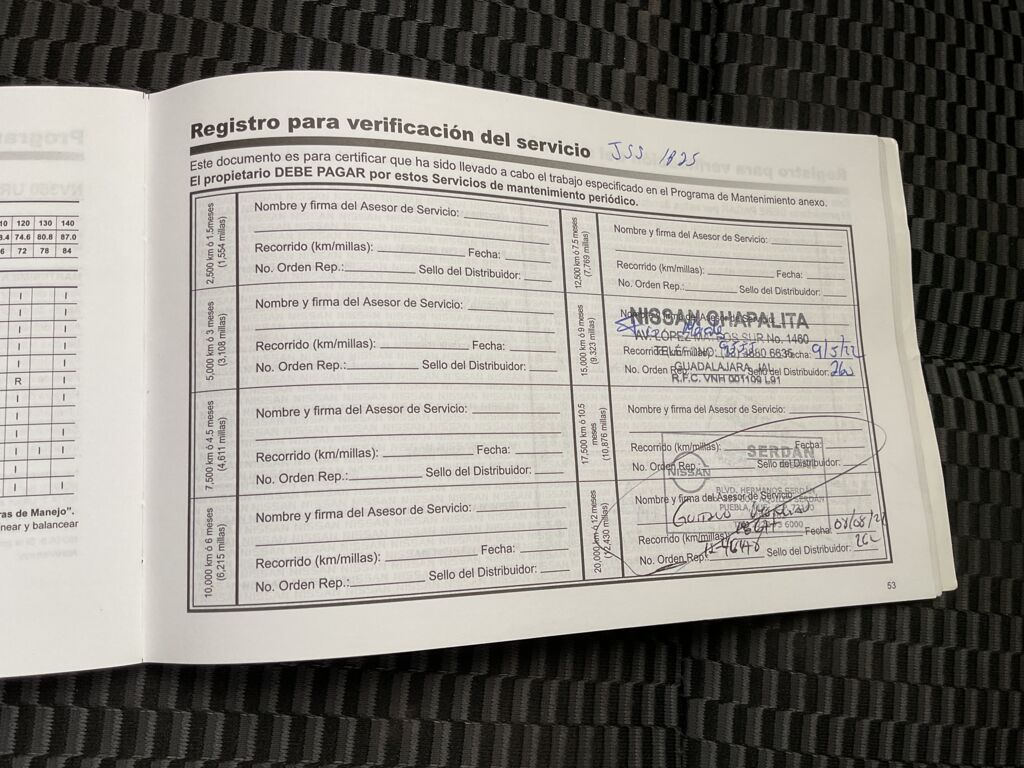 Registro para verificación del servicio JSS 1825
Este documento es para certificar que ha sido llevado a cabo el trabajo especificado en el Programa de Mantenimiento anexo.
El propietario DEBE PAGAR por estos Servicios de mantenimiento periódico.
2,500 km ó 1.5 meses
(1,554 millas)
Nombre y firma del Asesor de Servicio:
Recorrido (km/millas): Fecha:
No. Orden Rep.: Sello del Distribuidor:
5,000 km ó 3 meses
(3,108 millas)
Nombre y firma del Asesor de Servicio:
Recorrido (km/millas): Fecha:
No. Orden Rep.: Sello del Distribuidor:
7,500 km ó 4.5 meses
(4,611 millas)
Nombre y firma del Asesor de Servicio:
Recorrido (km/millas): Fecha:
No. Orden Rep.: Sello del Distribuidor:
10,000 km ó 6 meses
(6,215 millas)
Nombre y firma del Asesor de Servicio:
Recorrido (km/millas): Fecha:
No. Orden Rep.: Sello del Distribuidor:
12,500 km ó 7.5 meses
(7,769 millas)
Nombre y firma del Asesor de Servicio:
Recorrido (km/millas): Fecha:
No. Orden Rep.: Sello del Distribuidor:
15,000 km ó 9 meses
(9,323 millas)
NISSAN CHAPALITA
AV. LOPEZ MATEOS SUR No. 1460
Fecha: 9/5/22
No. Orden Rep. Sello del Distribuidor:
GUADALAJARA, JAL.
R.F.C. VNH 001109 L91
17,500 km ó 10.5
meses
(10,876 millas)
Nombre y firma del Asesor de Servicio:
Recorrido (km/millas): Fecha:
No. Orden Rep. Sello del Distribuidor:
SERDÁN
NISSAN
20,000 km ó 12 meses
(12,430 millas)
BLVD. HERMANOS SERDÁN
Nombre y firma del Asesor de Servicio:
PUEBLA
Recorrido (km/millas) Fecha:
No. Orden Rep.: Sello del Distribuidor:
53
120 130 140
74.6 80.8 87.0
72 78 84
R
ras de Manejo".
near y balancear